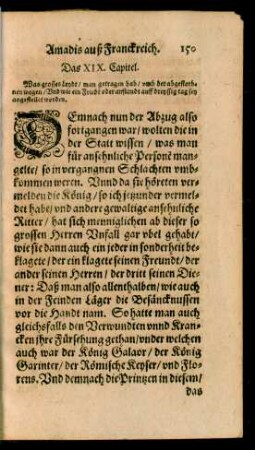 Amadis auß Franckreich. 150
Das XIX. Capitel.
Was grosses leydt / man getragen hab / vmb der abgestorb-
nen wegen / Vnd wie ein Fridt oder anstandt auff dreyssig tag sey
angestellet worden.
DEmnach nun der Abzug also
fortgangen war / wolten die in
der Statt wissen / was man
für ansehnliche Personē man-
gelte / so in vergangnen Schlachten vmb-
kommen weren. Vnnd da sie höreten ver-
melden die König / so ich jetzunder vermel-
det habe / vnd andere gewaltige ansehnliche
Ritter / hat sich menniglichen ab dieser so
grossen Herren Vnfall gar vbel gehabt /
wie sie dann auch ein jeder in sonderheit be-
klagete / der ein klagete seinen Freundt / der
ander seinen Herren / der dritt seinen Die-
ner: Daß man also allenthalben / wie auch
in der Feinden Läger die Besäncknussen
vor die Handt nam. So hatte man auch
gleichsfalls den Verwundten vnnd Kran-
cken jhre Fürsehung gethan / vnder welchen
auch war der König Galaor / der König
Garinter / der Römische Keyser / vnd Flo-
rens. Vnd demnach die Printzen in diesem /
das